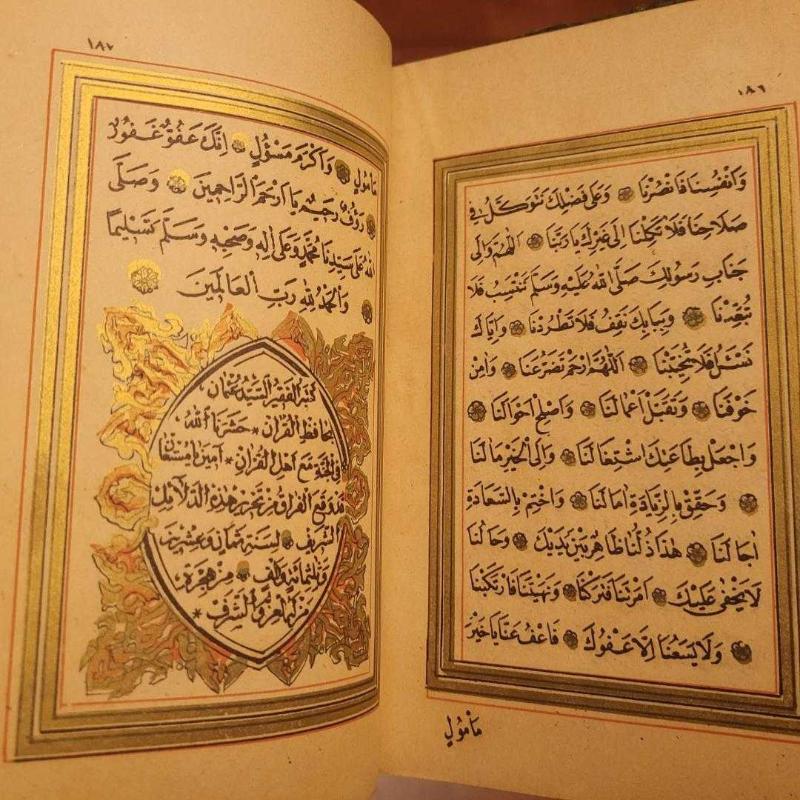 ١٨٦
وَانْفُسِنَا فَانْصُرْنَا ۞ وَعَلَى فَضْلِكَ نَتَوَكَّلُ فِى
صَلَاحِنَا فَلَا تَكِلْنَا اِلَى غَيْرِكَ يَا رَبَّنَا ۞ اَللّٰهُمَّ وَاِلَى
جَنَابِ رَسُولِكَ صَلَّى اللهُ عَلَيْهِ وَسَلَّمَ نَنْتَسِبُ فَلَا
تُبْعِدْنَا ۞ وَبِبَابِكَ نَقِفُ فَلَا تَطْرُدْنَا ۞ وَاِيَّاكَ
نَسْئَلُ فَلَا تُخَيِّبْنَا ۞ اَللّٰهُمَّ ارْحَمْ تَضَرُّعَنَا ۞ وَاٰمِنْ
خَوْفَنَا ۞ وَتَقَبَّلْ اَعْمَالَنَا ۞ وَاَصْلِحْ اَحْوَالَنَا ۞
وَاجْعَلْ بِطَاعَتِكَ اشْتِغَالَنَا ۞ وَاِلَى الْخَيْرِ مَآلَنَا
۞ وَحَقِّقْ بِالزِّيَادَةِ اٰمَالَنَا ۞ وَاخْتِمْ بِالسَّعَادَةِ
اٰجَالَنَا ۞ هٰذَا ذُلُّنَا ظَاهِرٌ بَيْنَ يَدَيْكَ ۞ وَحَالُنَا
لَا يَخْفَى عَلَيْكَ ۞ اَمَرْتَنَا فَتَرَكْنَا ۞ وَنَهَيْتَنَا فَارْتَكَبْنَا
۞ وَلَا يَسَعُنَا اِلَّا عَفْوُكَ ۞ فَاعْفُ عَنَّا يَا خَيْرَ
مَأْمُولٍ
١٨٧
مَأْمُولٍ ۞ وَاَكْرَمَ مَسْؤُلٍ ۞ اِنَّكَ عَفُوٌّ غَفُورٌ
۞ رَؤُفٌ رَحِيمٌ يَا اَرْحَمَ الرَّاحِمِينَ ۞ وَصَلَّى
اللهُ عَلَى سَيِّدِنَا مُحَمَّدٍ وَعَلَى اٰلِهِ وَصَحْبِهِ وَسَلَّمَ تَسْلِيمًا
۞ وَالْحَمْدُ لِلّٰهِ رَبِّ الْعَالَمِينَ ۞
كَتَبَهُ الْفَقِيرُ السَّيِّد عُثْمَان
بِحَافِظِ الْقُرْاٰنِ * حَشَرَنَا اللهُ
فِى الْجَنَّةِ مَعَ اَهْلِ الْقُرْاٰنِ * اٰمِينَ يَا مُسْتَعَانُ
قَدْ وَقَعَ الْفَرَاغُ مِنْ تَحْرِيرِ هٰذِهِ الدَّلَائِلِ
الشَّرِيفِ ۞ لِسَنَةِ ثَمَانٍ وَعِشْرِينَ
وَثَلٰثُمِائَةٍ وَاَلْفٍ ۞ مِنْ هِجْرَةِ
مَنْ لَهُ الْعِزُّ وَالشَّرَفُ *